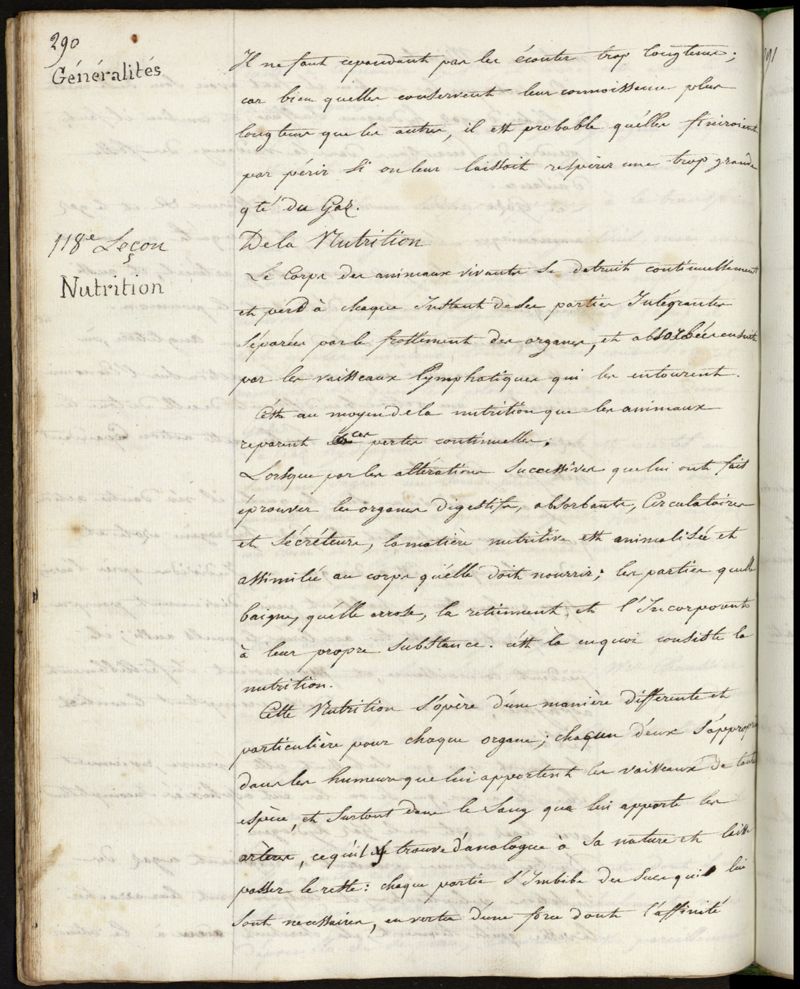 290
Généralités
Il ne faut cependant pas les écouter trop longtems;
car bien qu'elles conservent leur connoissance plus
longtems que les autres, il est probable qu'elles finiroient
par périr si on leur laissoit respirer une trop grande
qté du Gaz.
118e Leçon
De la Nutrition
Nutrition
Le Corps des animaux vivants se detruit continuellement
et perd à chaque Instant de ses parties Intégrantes
séparées par le frottement des organes, et absorbées ensuite
par les vaisseaux lymphatiques qui les entourent.
C'est au moyen de la nutrition que les animaux
reparent ces pertes continuelles.
Lorsque par les altérations successives que lui ont fait
éprouver les organes digestifs, absorbants, Circulatoires
et Sécréteurs, la matière nutritive est animalisée et
assimilée au corps qu'elle doit nourrir; les parties qu'elle
baigne, qu'elle arrose, la retiennent et l'Incorporent
à leur propre substance. c'est là en quoi consiste la
nutrition.
Cette Nutrition s'opère d'une manière différente et
particulière pour chaque organe; chaqun d'eux s'approprie
dans les humeurs que lui apportent les vaisseaux de toute
espèce, et surtout dans le Sang que lui apporte les
artères, ce qu'il y trouve d'analogue à sa nature et laisse
passer le reste: chaque partie s'Imbibe des sucs qui lui
sont necessaires, en vertu d'une force dont l'affinité
291